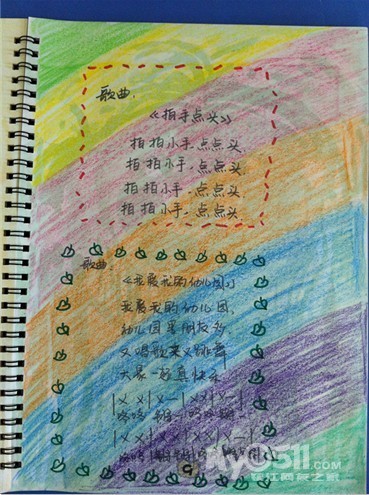 歌曲:
《拍手点头》
拍拍小手、点点头
拍拍小手、点点头
拍拍小手、点点头
拍拍小手、点点头
歌曲:
《我爱我的幼儿园》
我爱我的幼儿园,
幼儿园里朋友多,
又唱歌来又跳舞
大家一起真快乐
|X X|X —|X X|X —|
|X X|X X|X X|X —|
my0511.com